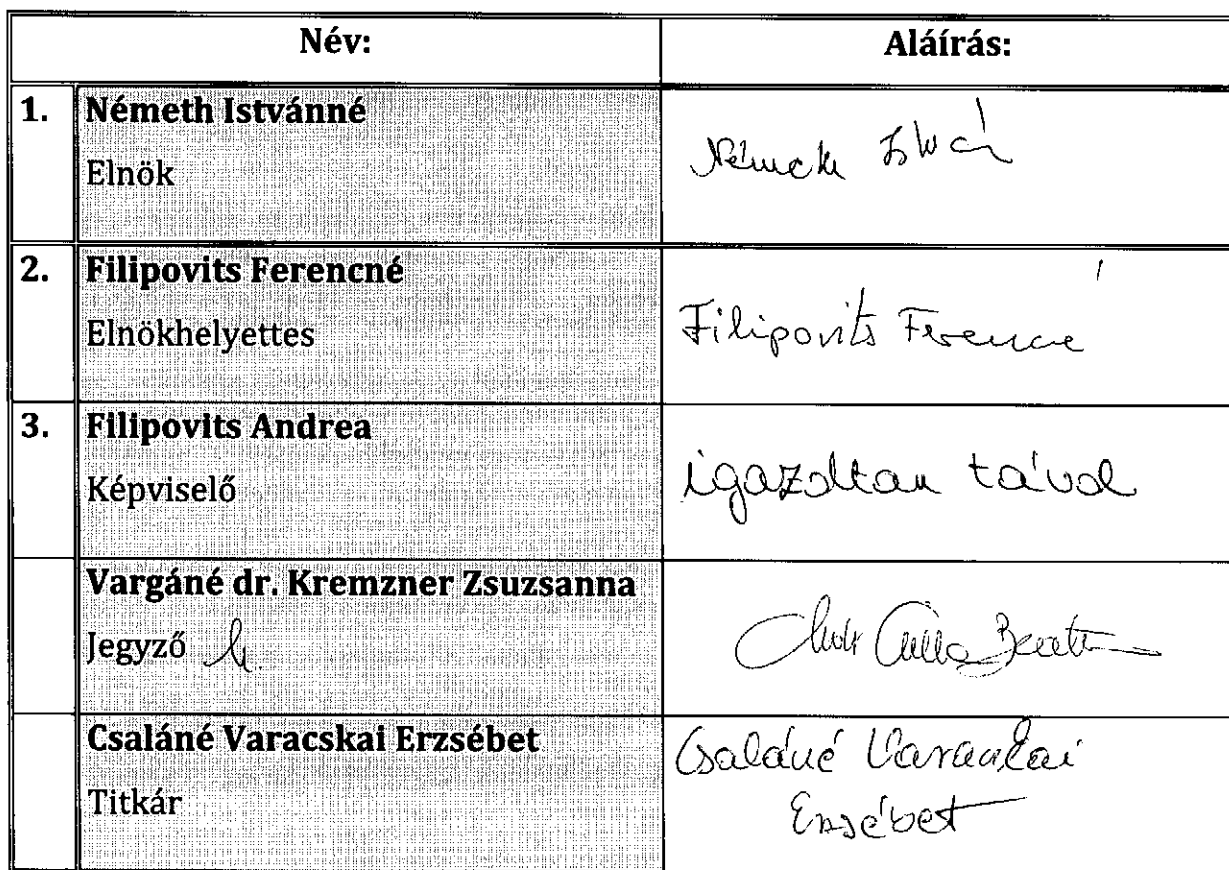 Név: Aláírás:
1. Németh Istvánné
Elnök
Németh
2. Filipovits Ferencné
Elnökhelyettes
Filipovits Ferencné
3. Filipovits Andrea
Képviselő
igazoltan távol
Vargáné dr. Kremzner Zsuzsanna
Jegyző
Csaláné Varacskai Erzsébet
Titkár
Csaláné Varacskai
Erzsébet